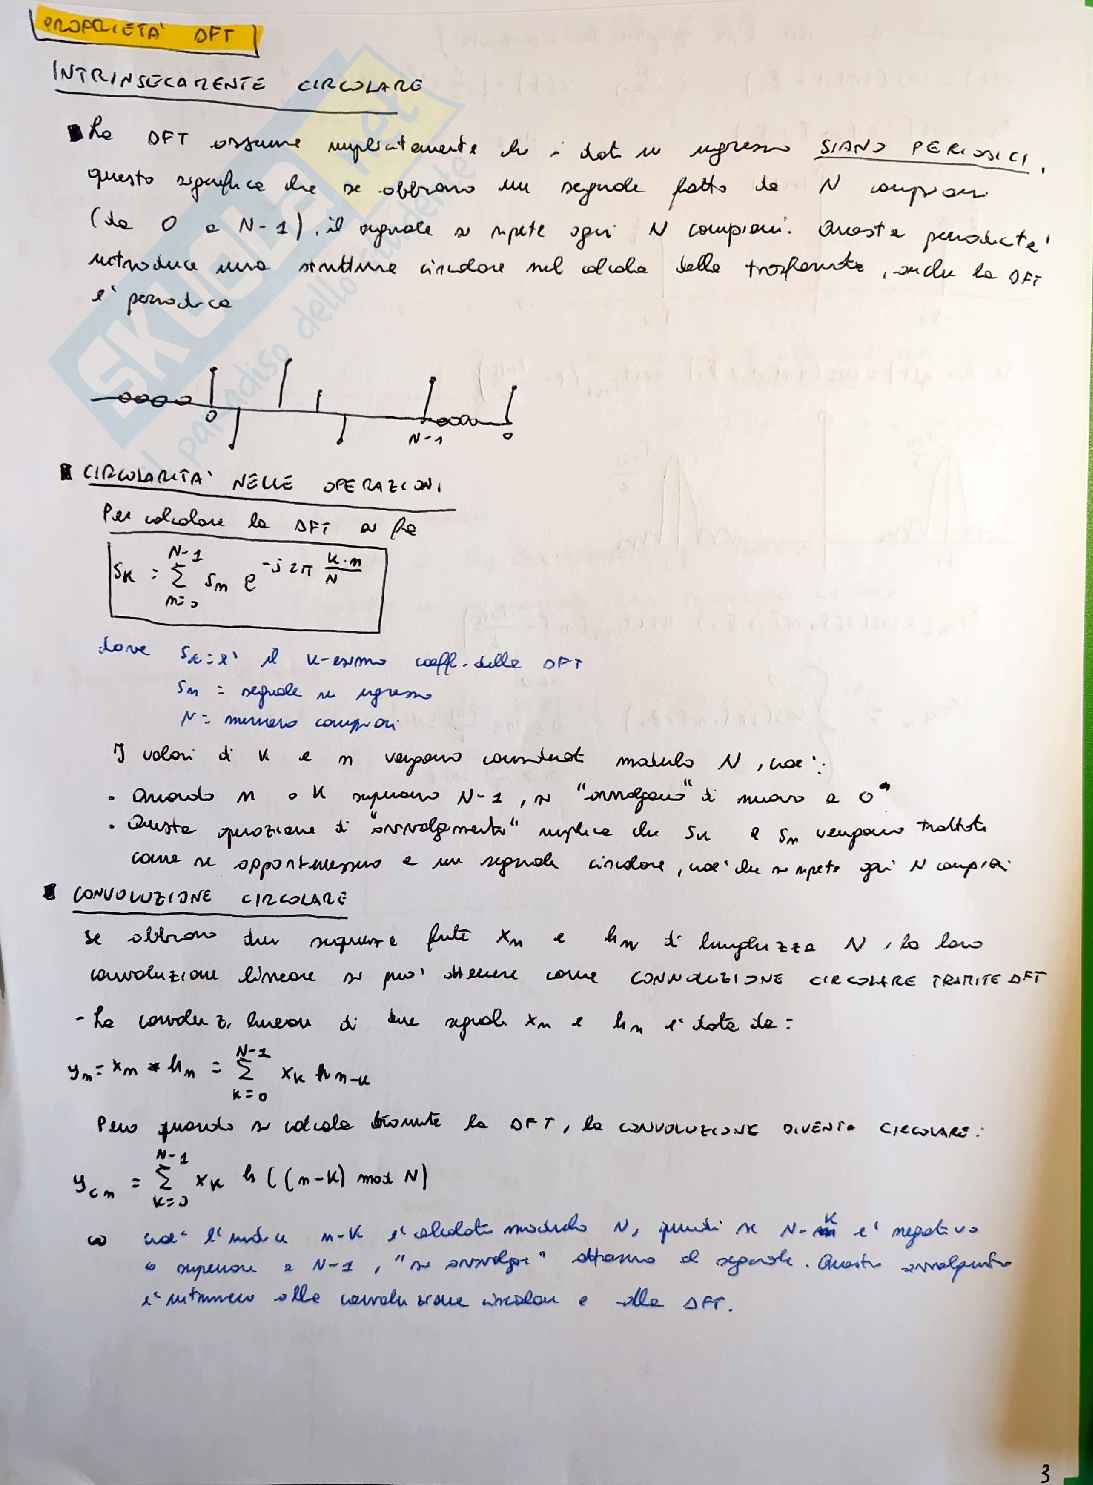 PROPRIETA' DFT
INTRINSECAMENTE CIRCOLARE
La DFT assume implicitamente che i dati in ingresso SIANO PERIODICI,
questo significa che se abbiamo un segnale fatto da N campioni
(da 0 a N-1), il segnale si ripete ogni N campioni. Questa periodicita'
introduce una struttura circolare nel calcolo della trasformata, anche la DFT
e' periodica
0 N-1 0
CIRCOLARITA' NELLE OPERAZIONI
Per calcolare la DFT si fa
S_K = Σ_{n=0}^{N-1} s_n e^{-j2π \frac{K·n}{N}}
dove S_K = e' il K-esimo coeff. della DFT
s_n = segnale in ingresso
N = numero campioni
I valori di K e n vengono considerati modulo N, cioe':
• Quando n o K superano N-1, si "avvolgono" di nuovo a 0"
• Questa operazione di "avvolgimento" implica che S_K e s_n vengano trattati
come se appartenessero a un segnale circolare, cioe' che si ripete ogni N campioni
CONVOLUZIONE CIRCOLARE
Se abbiamo due sequenze finite x_n e h_n di lunghezza N, la loro
convoluzione lineare si puo' ottenere come CONVOLUZIONE CIRCOLARE TRAMITE DFT
- La convoluz. lineare di due segnali x_n e h_n e' data da:
y_n = x_n * h_n = Σ_{k=0}^{N-1} x_k h_{n-k}
Pero quando si calcola tramite la DFT, la CONVOLUZIONE DIVENTA CIRCOLARE:
y_{c n} = Σ_{k=0}^{N-1} x_k h((n-k) mod N)
cioe' l'indice n-k e' calcolato modulo N, quindi se N-K e' negativo
o superiore a N-1, "si avvolge" attorno al segnale. Questo avvolgimento
e' intrinseco alla convoluzione circolare e alla DFT.
3
SKUOLA.net
il paradiso dello studente